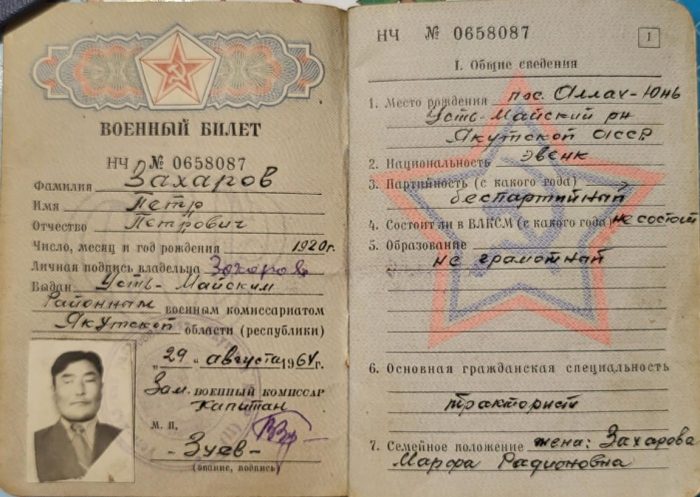 ВОЕННЫЙ БИЛЕТ
НЧ № 0658087
Фамилия Захаров
Имя Петр
Отчество Петрович
Число, месяц и год рождения 1920г.
Личная подпись владельца Захаров
Выдан Усть-Майским
Районным военным комиссариатом
Якутской области (республики)
"29" августа 1964г.
Зам. ВОЕННЫЙ КОМИССАР
Капитан
М. П.
-Зуев-
(звание, подпись)
НЧ № 0658087
1
I. Общие сведения
1. Место рождения пос. Аллах-Юнь
Усть-Майский рн
Якутской АССР
2. Национальность эвенк
3. Партийность (с какого года)
беспартийный
4. Состоит ли в ВЛКСМ (с какого года) не состоит
5. Образование
не грамотный
6. Основная гражданская специальность
тракторист
7. Семейное положение жена: Захарова
Марфа Радионовна